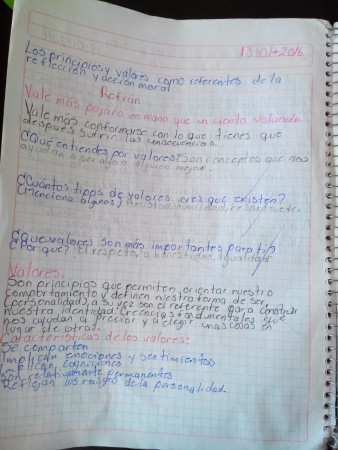 1330/+2016
Los principios y valores como referentes de la
reflección y acción moral
Refran
Vale más pajaro en mano que un ciento volando
Vale mas conformarse con lo que tienes que
después sufrir las consecuencias.
¿Que entiendes por valores? Son conceptos que nos
ayudan a ser algo o alguien mejor.
¿Cuántos tipos de valores crees que existen?
(Menciona algunos) Amistad, humildad, respeto, etc.
¿Que valores son más importantes para ti?
¿Por qué? El respeto, la honestidad, igualdad
Valores:
Son principios que permiten orientar nuestro
comportamiento y definen nuestra forma de ser
(personalidad) a su vez son el referente para construir
nuestra identidad. Creencias fundamentales que
nos ayudan a preciar y a elegir unas cosas en
lugar de otras.
Características de los valores:
Se comparten
Implican emociones y sentimientos
Implican cogniciones
Son relativamente permanentes
Reflejan los rasgos de la personalidad.